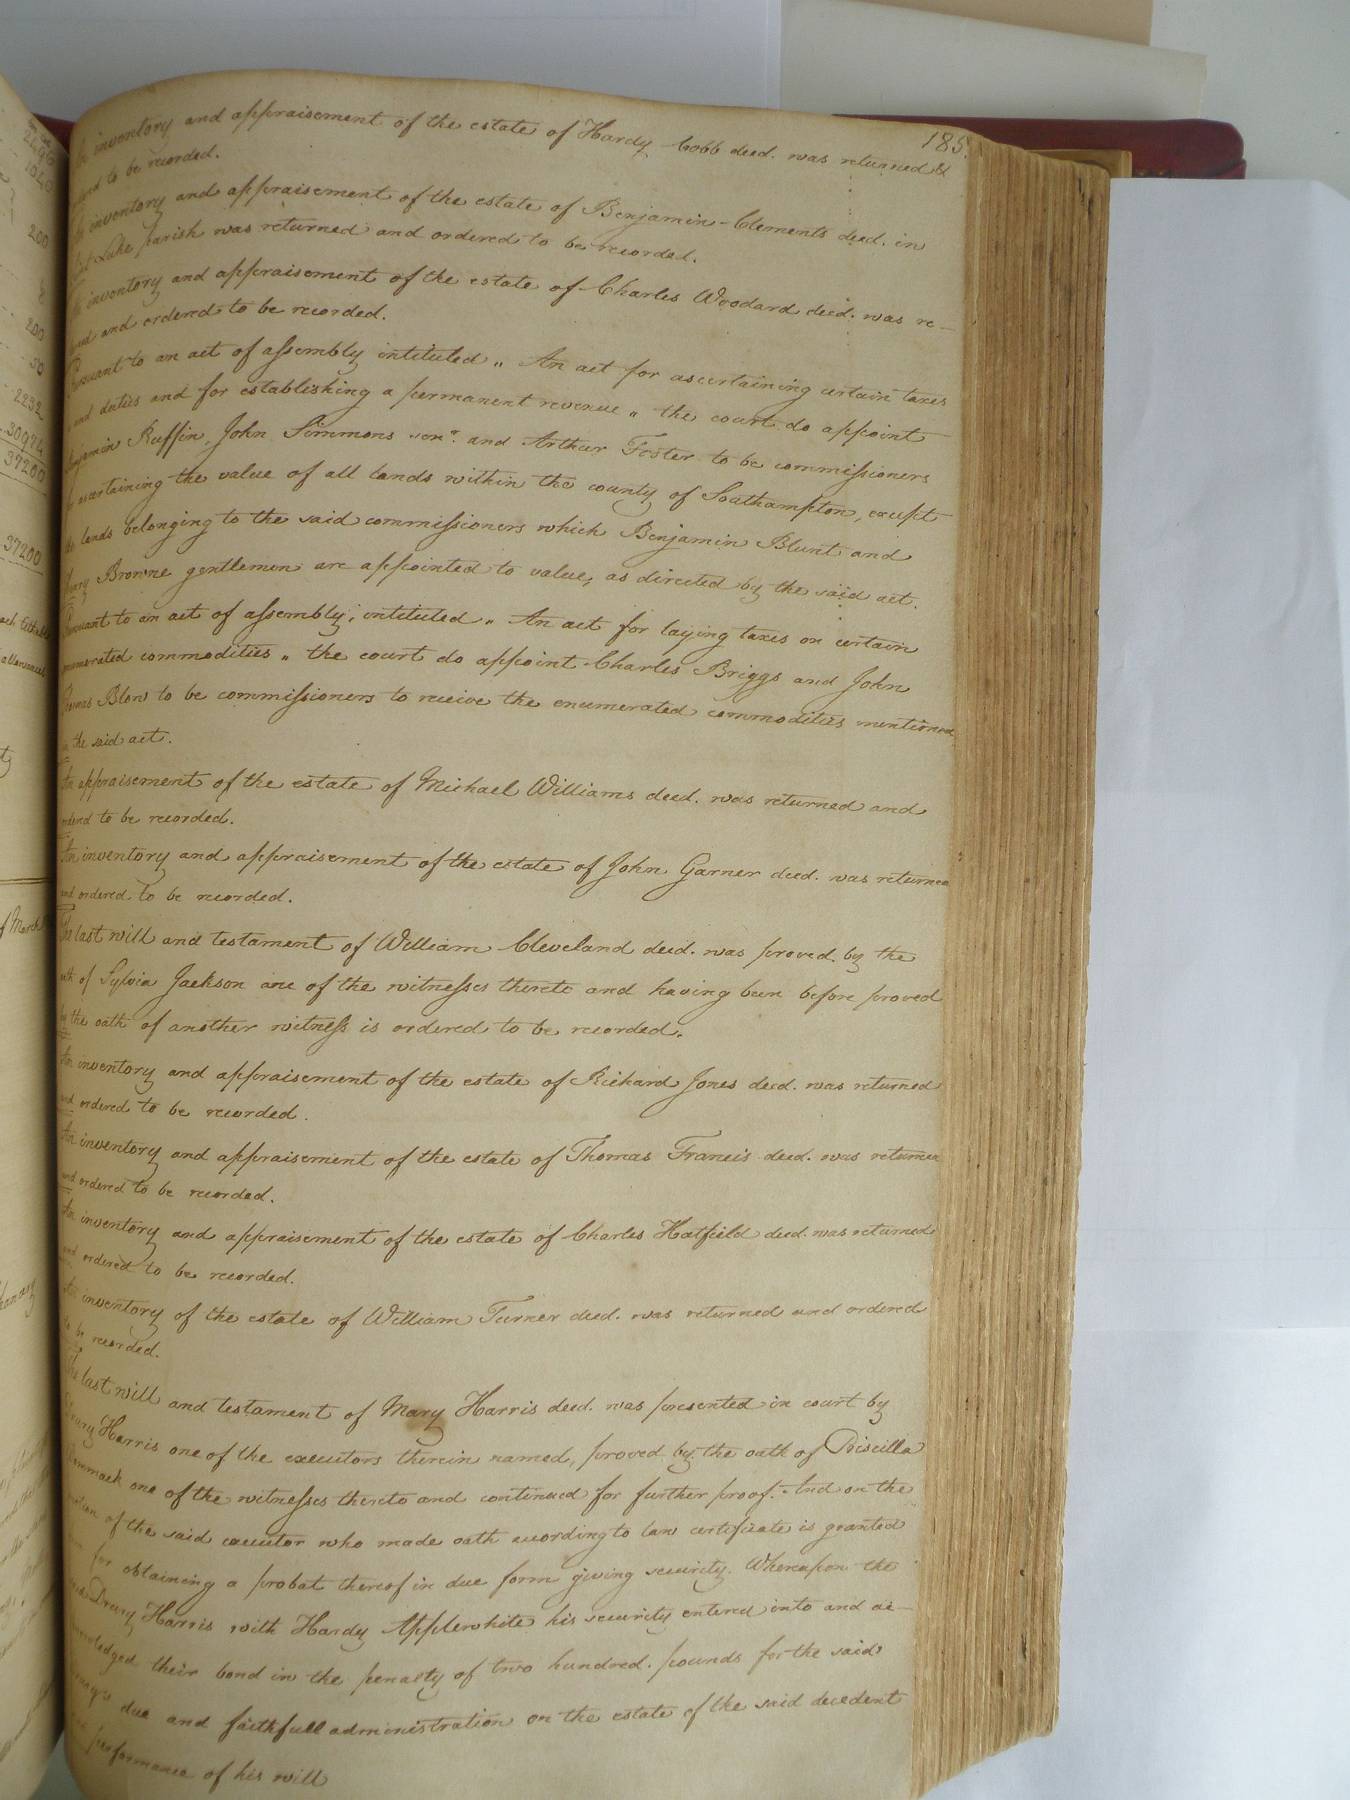 185.
inventory and appraisement of the estate of Hardy Cobb deed. was returned &
to be recorded.
inventory and appraisement of the estate of Benjamin Clements deed. in
Luke parish was returned and ordered to be recorded.
inventory and appraisement of the estate of Charles Woodard deed. was re-
and ordered to be recorded.
Pursuant to an act of assembly intituled „ An act for ascertaining certain taxes
and duties and for establishing a permanent revenue „ the court do appoint
Benjamin Ruffin, John Simmons senr. and Arthur Foster to be commissioners
ascertaining the value of all lands within the county of Southampton, except
the lands belonging to the said commissioners which Benjamin Blunt and
Browne gentlemen are appointed to value, as directed by the said act.
Pursuant to an act of assembly, intituled „ An act for laying taxes on certain
enumerated commodities „ the court do appoint Charles Briggs and John
Thomas Blow to be commissioners to receive the enumerated commodities mentioned
in the said act.
An appraisement of the estate of Michael Williams deed. was returned and
ordered to be recorded.
An inventory and appraisement of the estate of John Garner deed. was returned
and ordered to be recorded.
The last will and testament of William Cleveland deed. was proved by the
oath of Sylvia Jackson one of the witnesses thereto and having been before proved
by the oath of another witness is ordered to be recorded.
An inventory and appraisement of the estate of Richard Jones deed. was returned
and ordered to be recorded.
An inventory and appraisement of the estate of Thomas Francis deed. was returned
and ordered to be recorded.
An inventory and appraisement of the estate of Charles Hatfield deed. was returned
and ordered to be recorded.
An inventory of the estate of William Turner deed. was returned and ordered
to be recorded.
The last will and testament of Mary Harris deed. was presented in court by
Drury Harris one of the executors therein named, proved by the oath of Priscilla
one of the witnesses thereto and continued for further proof. And on the
motion of the said executor who made oath according to law certificate is granted
for obtaining a probat thereof in due form giving security. Whereupon the
said Drury Harris with Hardy Applewhite his security entered into and ac-
knowledged their bond in the penalty of two hundred pounds for the said
due and faithfull administration on the estate of the said decedent
performance of his will